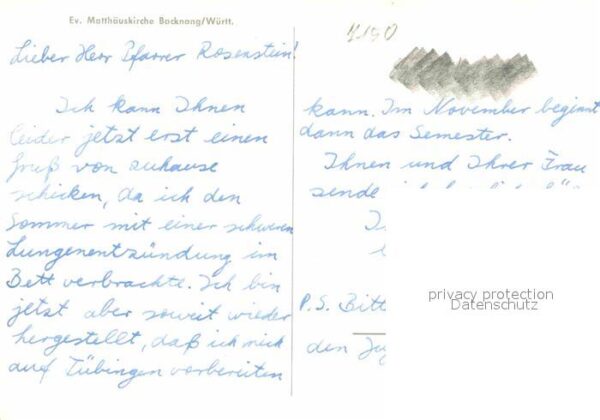 Ev. Matthäuskirche Backnang/Württ.
Lieber Herr Pfarrer Rosenstein!
Ich kann Ihnen
leider jetzt erst einen
Gruß von zuhause
schicken, da ich den
Sommer mit einer schweren
Lungenentzündung im
Bett verbrachte. Ich bin
jetzt aber soweit wieder
hergestellt, daß ich mich
auf Tübingen vorbereiten
kann. Im November beginnt
dann das Semester.
Ihnen und Ihrer Frau
sende
P.S. Bitt
den
privacy protection
Datenschutz